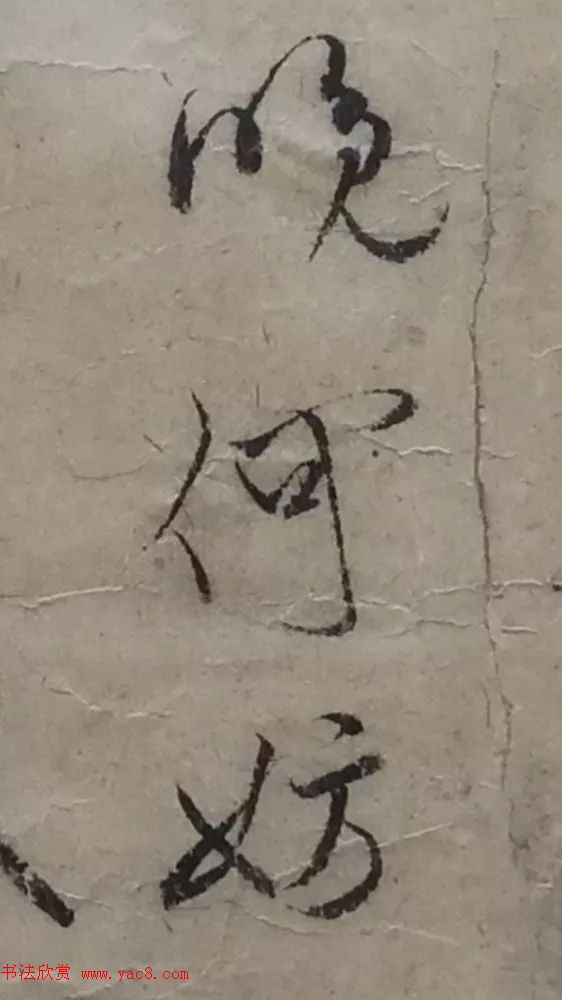 晚何妨
书法欣赏 www.yac8.com